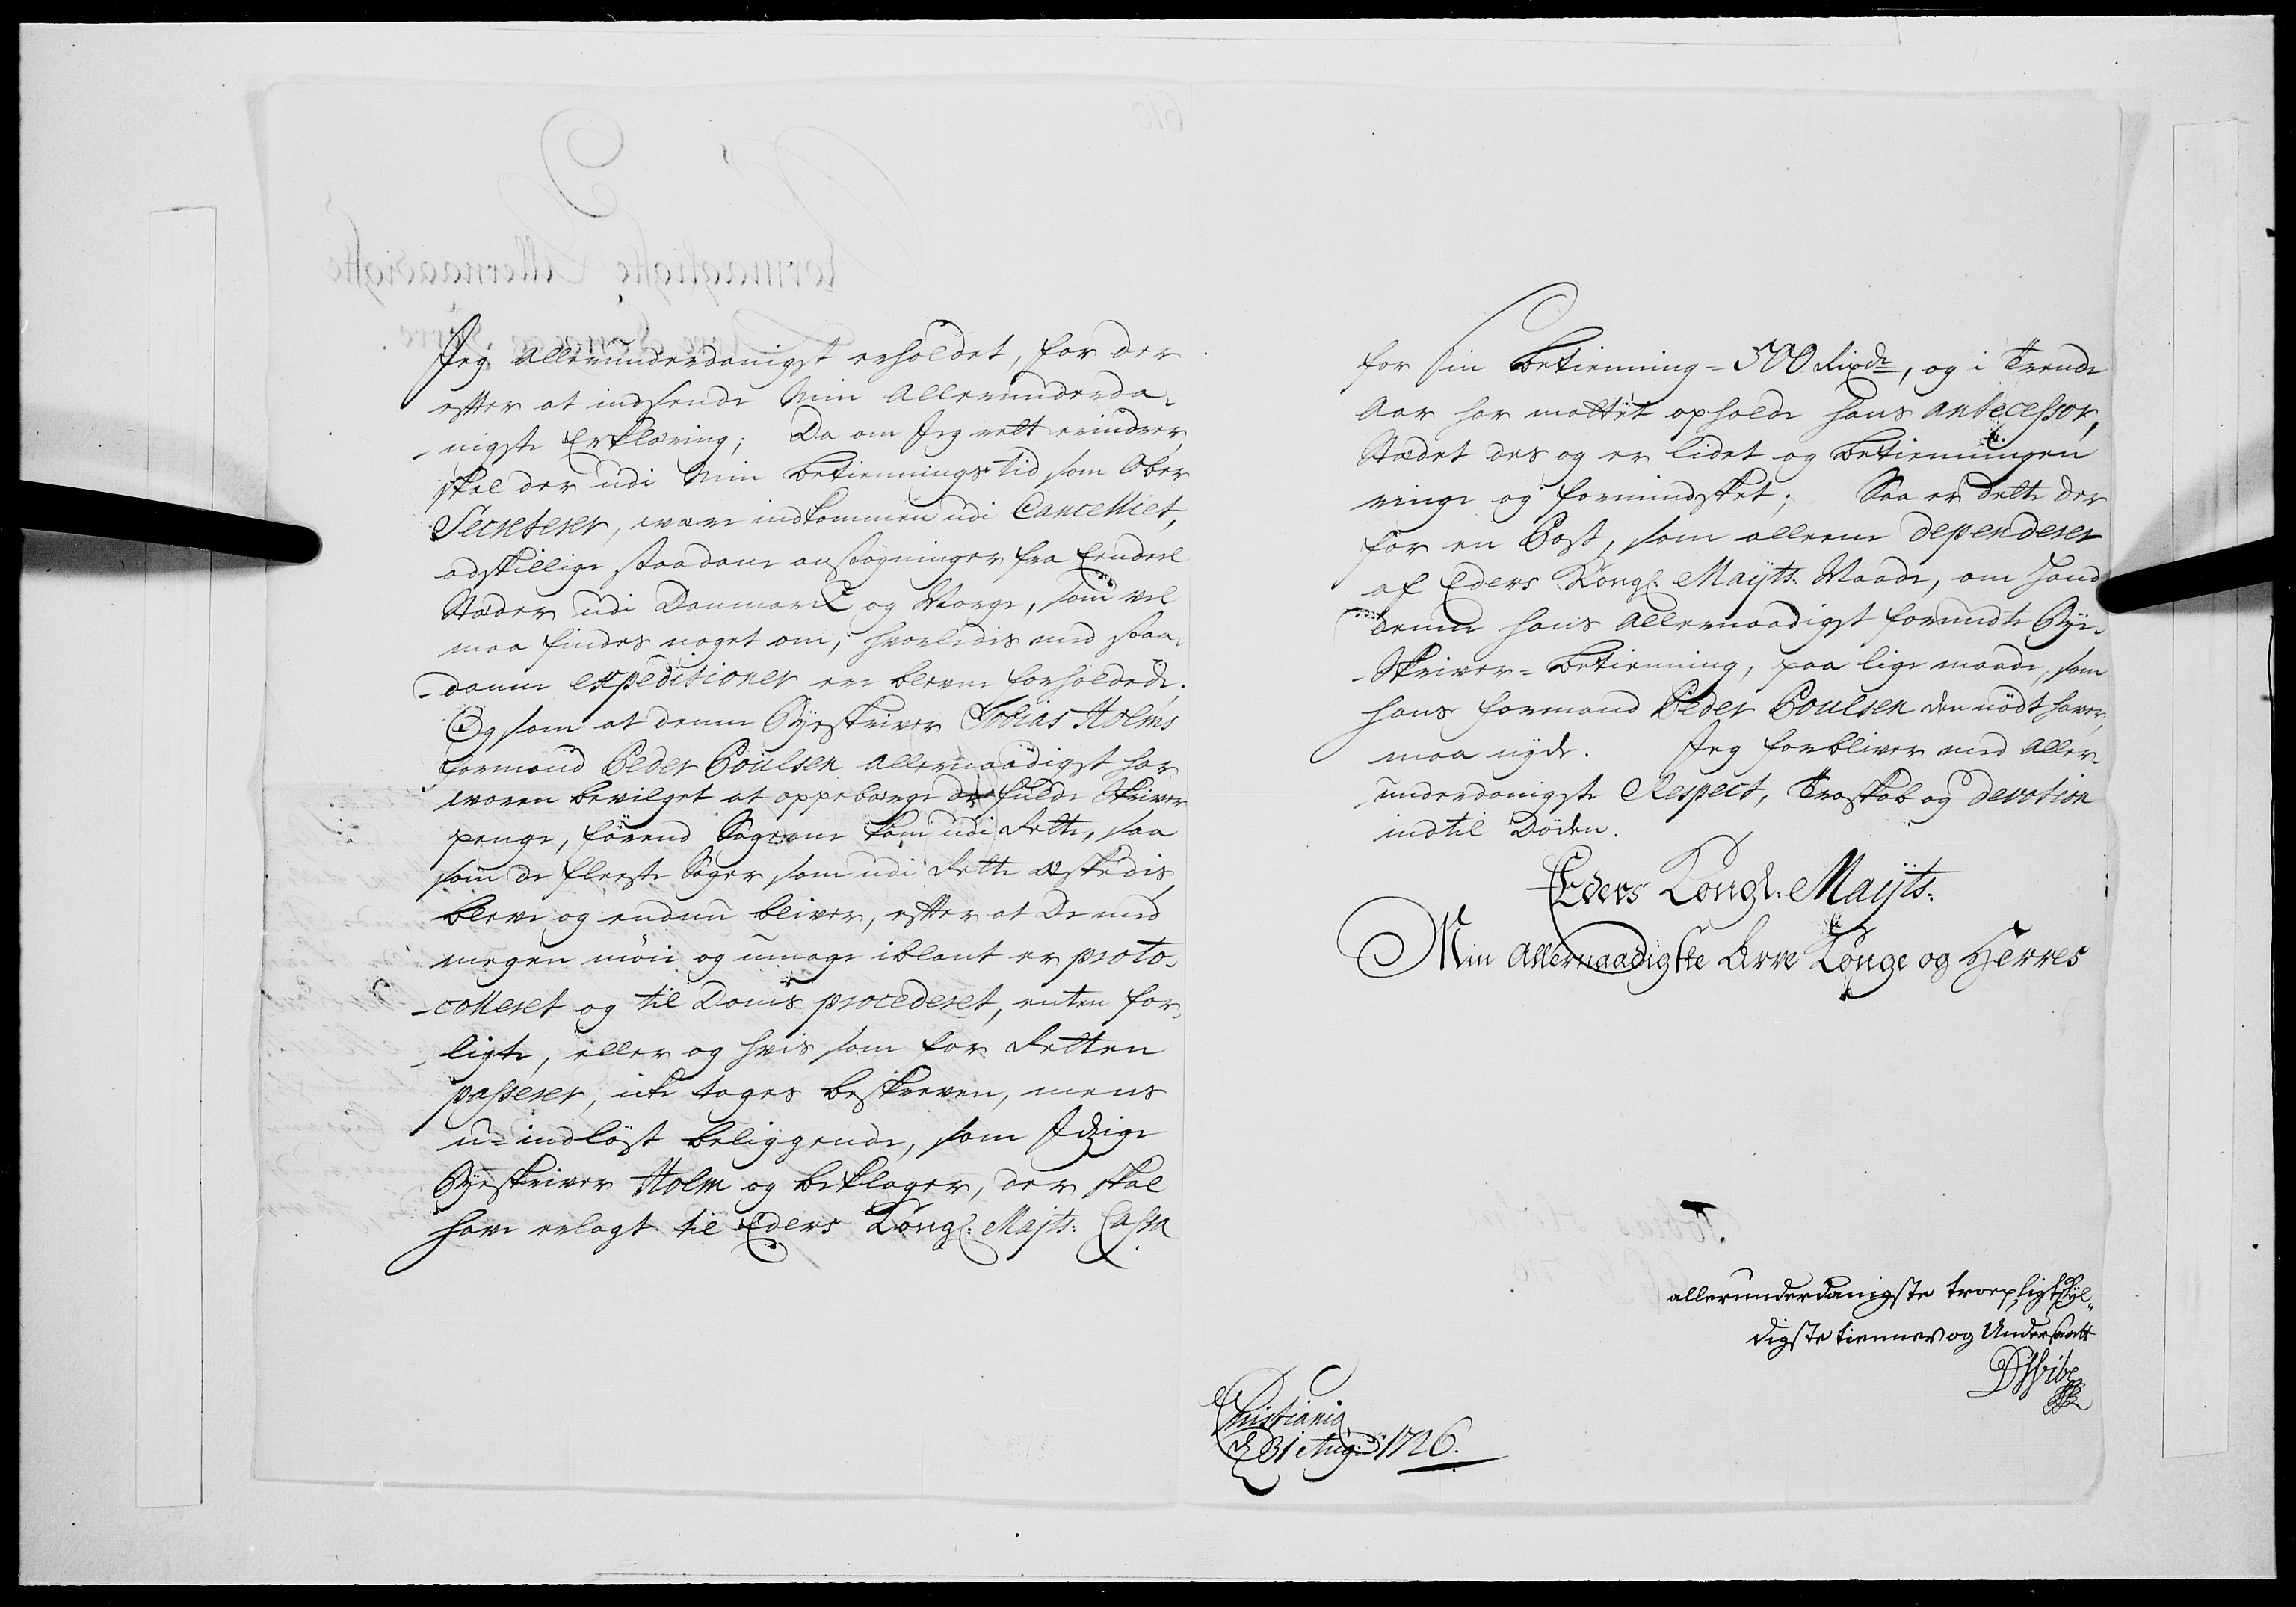 Jeg allerunderdanigst erholdet, for der
efter at indsende Min Allerunderda-
-nigste Erklæring; Da om Jeg rett erindrer,
skal der udi Min betienningstid som Ober
Secreterer, være indkommen udi Cancelliet,
adskillige saadane ansøgninger fra Eendeel
Stæder udi Danmark og Norge, som vel
maa findes noget om, hvorledis med saa-
-danne expeditioner ere blevne forholdede.
Og som at denne Byeskriver Tobias Holms
formand Peder Poulsen Allernaadigst har
været bevilget at oppebærge de fulde Skriver
penge, førend Sagerne kom udi Rette, saa
som de fleeste Sager som udi Rette æskedis
bleve og endnu bliver, efter at De med
megen møie og umage iblant er proto-
-colleret og til Doms procederet, enten for-
-ligte, eller og hvis som for Retten
passerer, icke tages beskreven, mens
u-indløst beliggende, som Itzige
Byeskriver Holm og beklager, der skal
have erlagt til Eders Kongl: Majts: Cassa
for sin betienning = 500 Rixdr, og i Trende
Aar har mattet opholde hans antecessor,
Stædet des og er lidet og betienningen
ringe og formindsket; Saa er dette der
for en Post, som alleene dependerer
af Eders Kongl: Mayts. Naade, om hand
denne hans Allernaadigst forundte Bye-
-Skriver-betienning, paa lige maade, som
hans formand Peder Poulsen den nødt haver,
maa nyde. Jeg forbliver med Aller-
underdanigste Respect, Troskab og devotion
indtil Døden.
Eders Kongl: Mayts.
Min Allernaadigste Arve Konge og Herres
allerunderdanigste troepligtskyl-
digste tienner og Undersaatt
DVibe
Christiania
d 31 Aug: 1726.